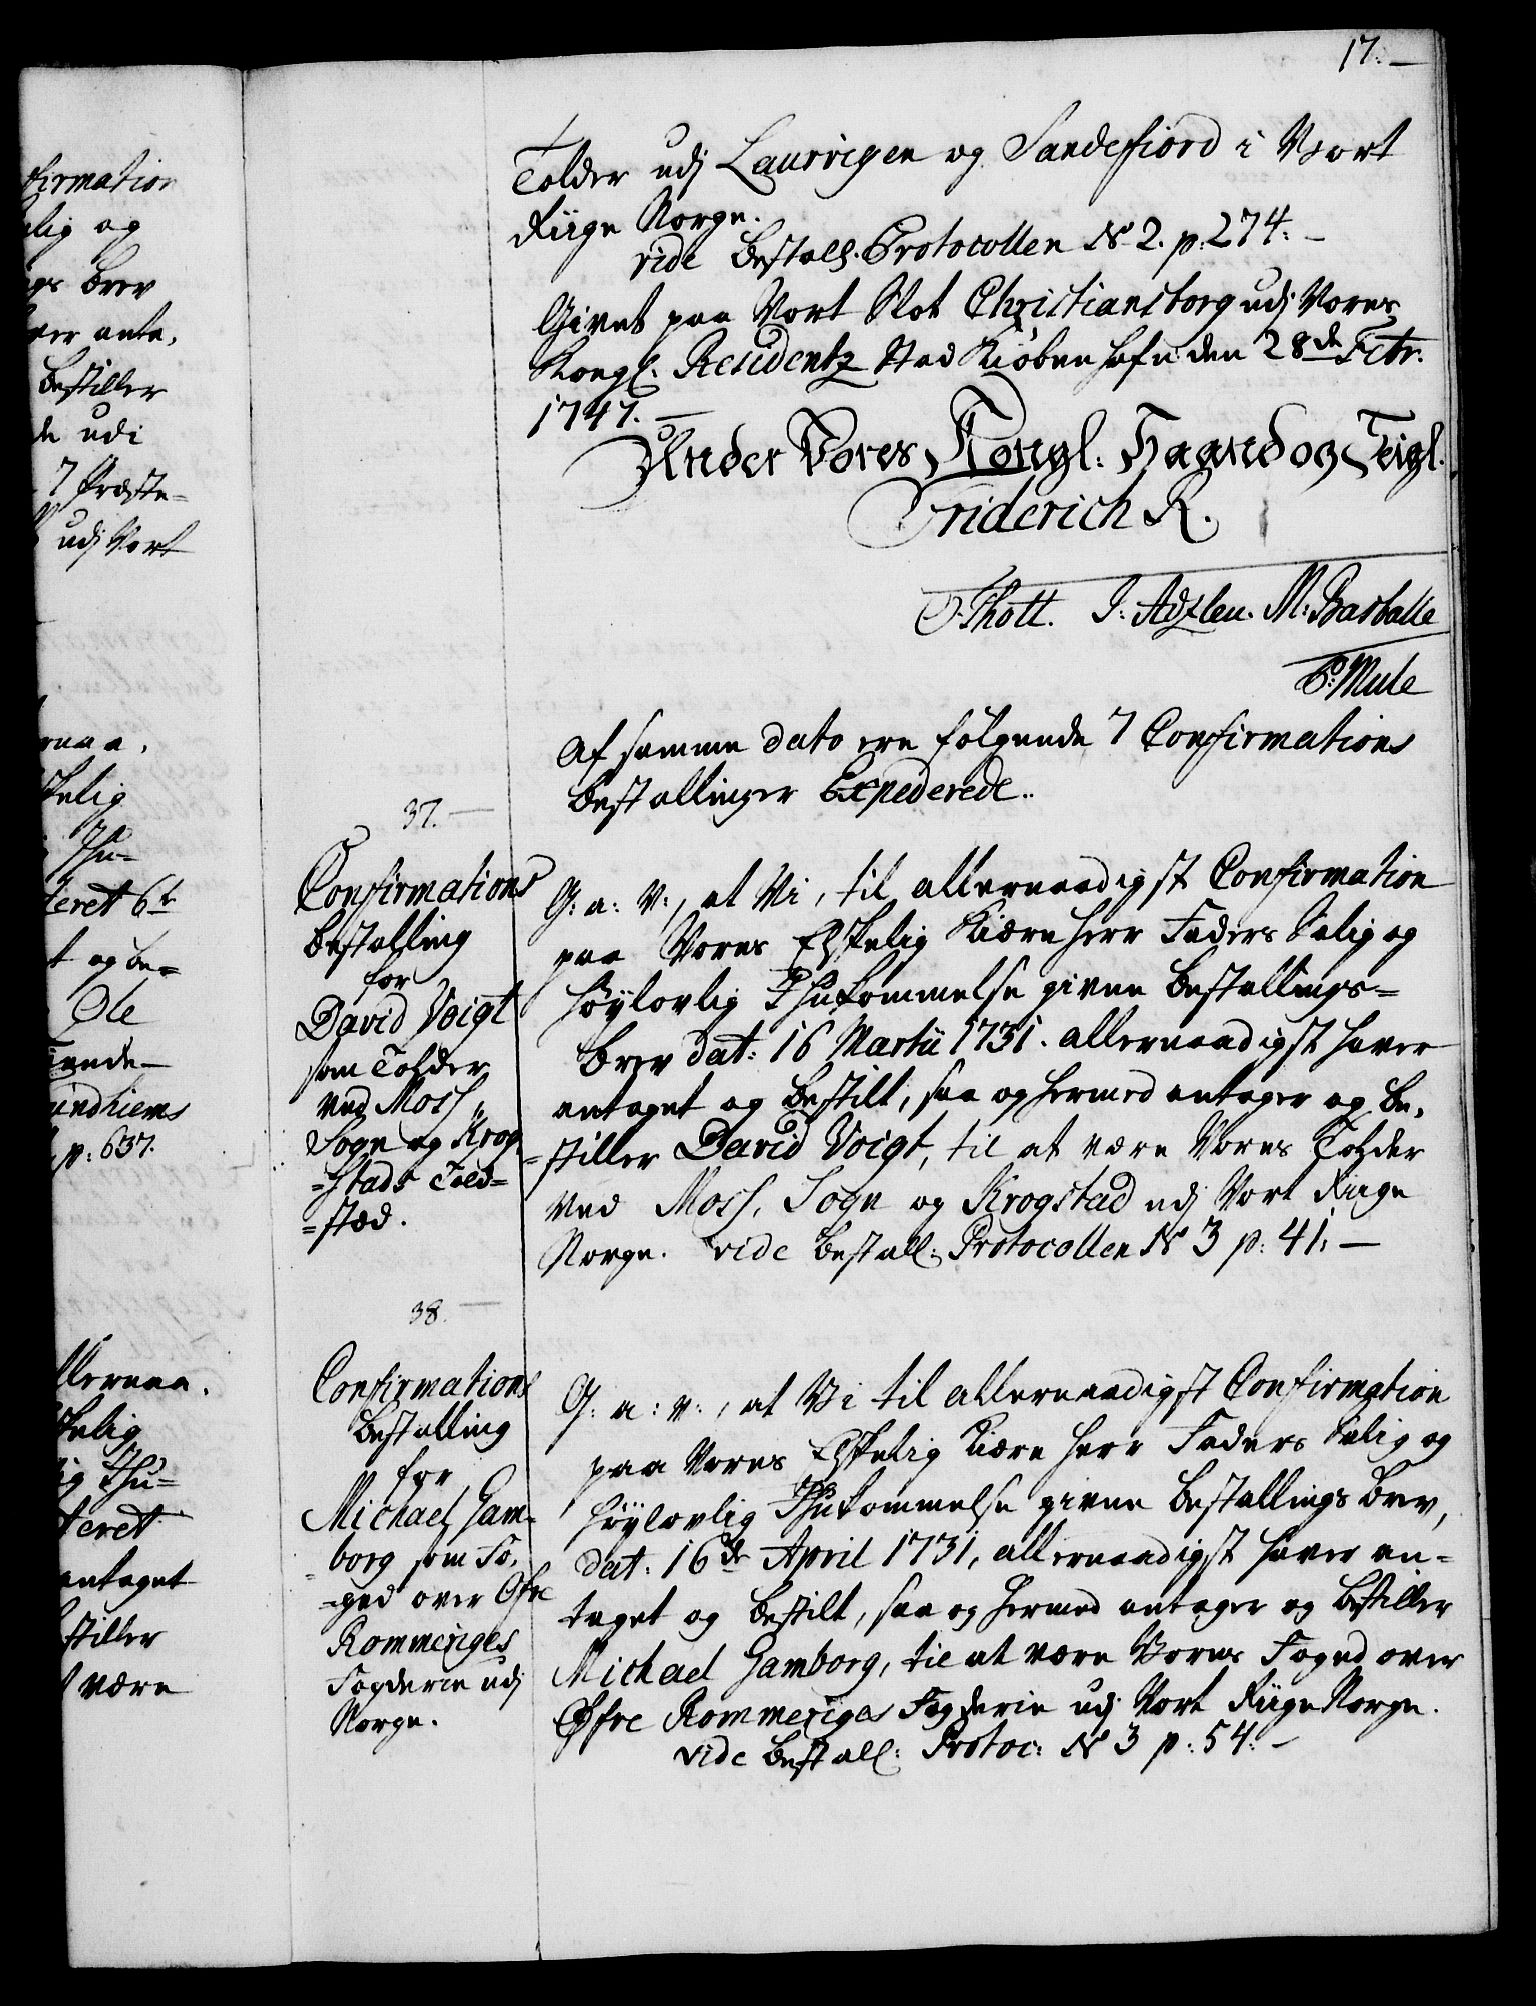 17.
Tolder udj Laurvigen og Sandefiord i Vort
Riige Norge.
vide Bestall. Protocollen No 2. p. 274.
Givet paa Vort Slot Christiansborg udj Vores
Kongl. Residentz Stad Kiøbenhafn den 28de Febr.
1747.
Under Vores Kongl. Haand og Seigl.
Friderich R.
O. Thott. J. M. Barballe
P. Mule
Af samme dato ere følgende 7 Confirmations
Bestallinger Expederede.
37.
Confirmations
Bestalling
for
David Voigt
som Tolder
ved Moss,
Sogn og Krog
=stads Told=
=stæd.
G: a: V:, at Vi, til allernaadigst Confirmation
paa Vores Elskelig Kiære Herr Faders Salig og
Høylovlig Ihukommelse givne Bestallings=
Brev dat: 16 Martii 1731. allernaadigst haver
antaget og bestilt, saa og hermed antager og be,
=stiller David Voigt, til at være Vores Tolder
ved Moss, Sogn og Krogstad udj Vort Riige
Norge. vide Bestall: Protocollen No 3 p: 41.
38.
Confirmations
Bestalling
for
Michael Gam=
=borg som Fo,
=ged over Øfre
Rommeriges
Fogderie udj
Norge.
G: a: v:, at Vi til allernaadigst Confirmation
paa Vores Elskelig Kiære Herr Faders Salig og
Høylovlig Ihukommelse givne Bestallings Brev,
dat: 16de April 1731, allernaadigst haver an=
taget og bestilt, saa og hermed antager og bestiller
Michael Gamborg, til at være Vores Foged over
Øfre Rommeriges Fogderie udj Vort Riige Norge.
vide Bestall: Protoc: No 3 p: 54.